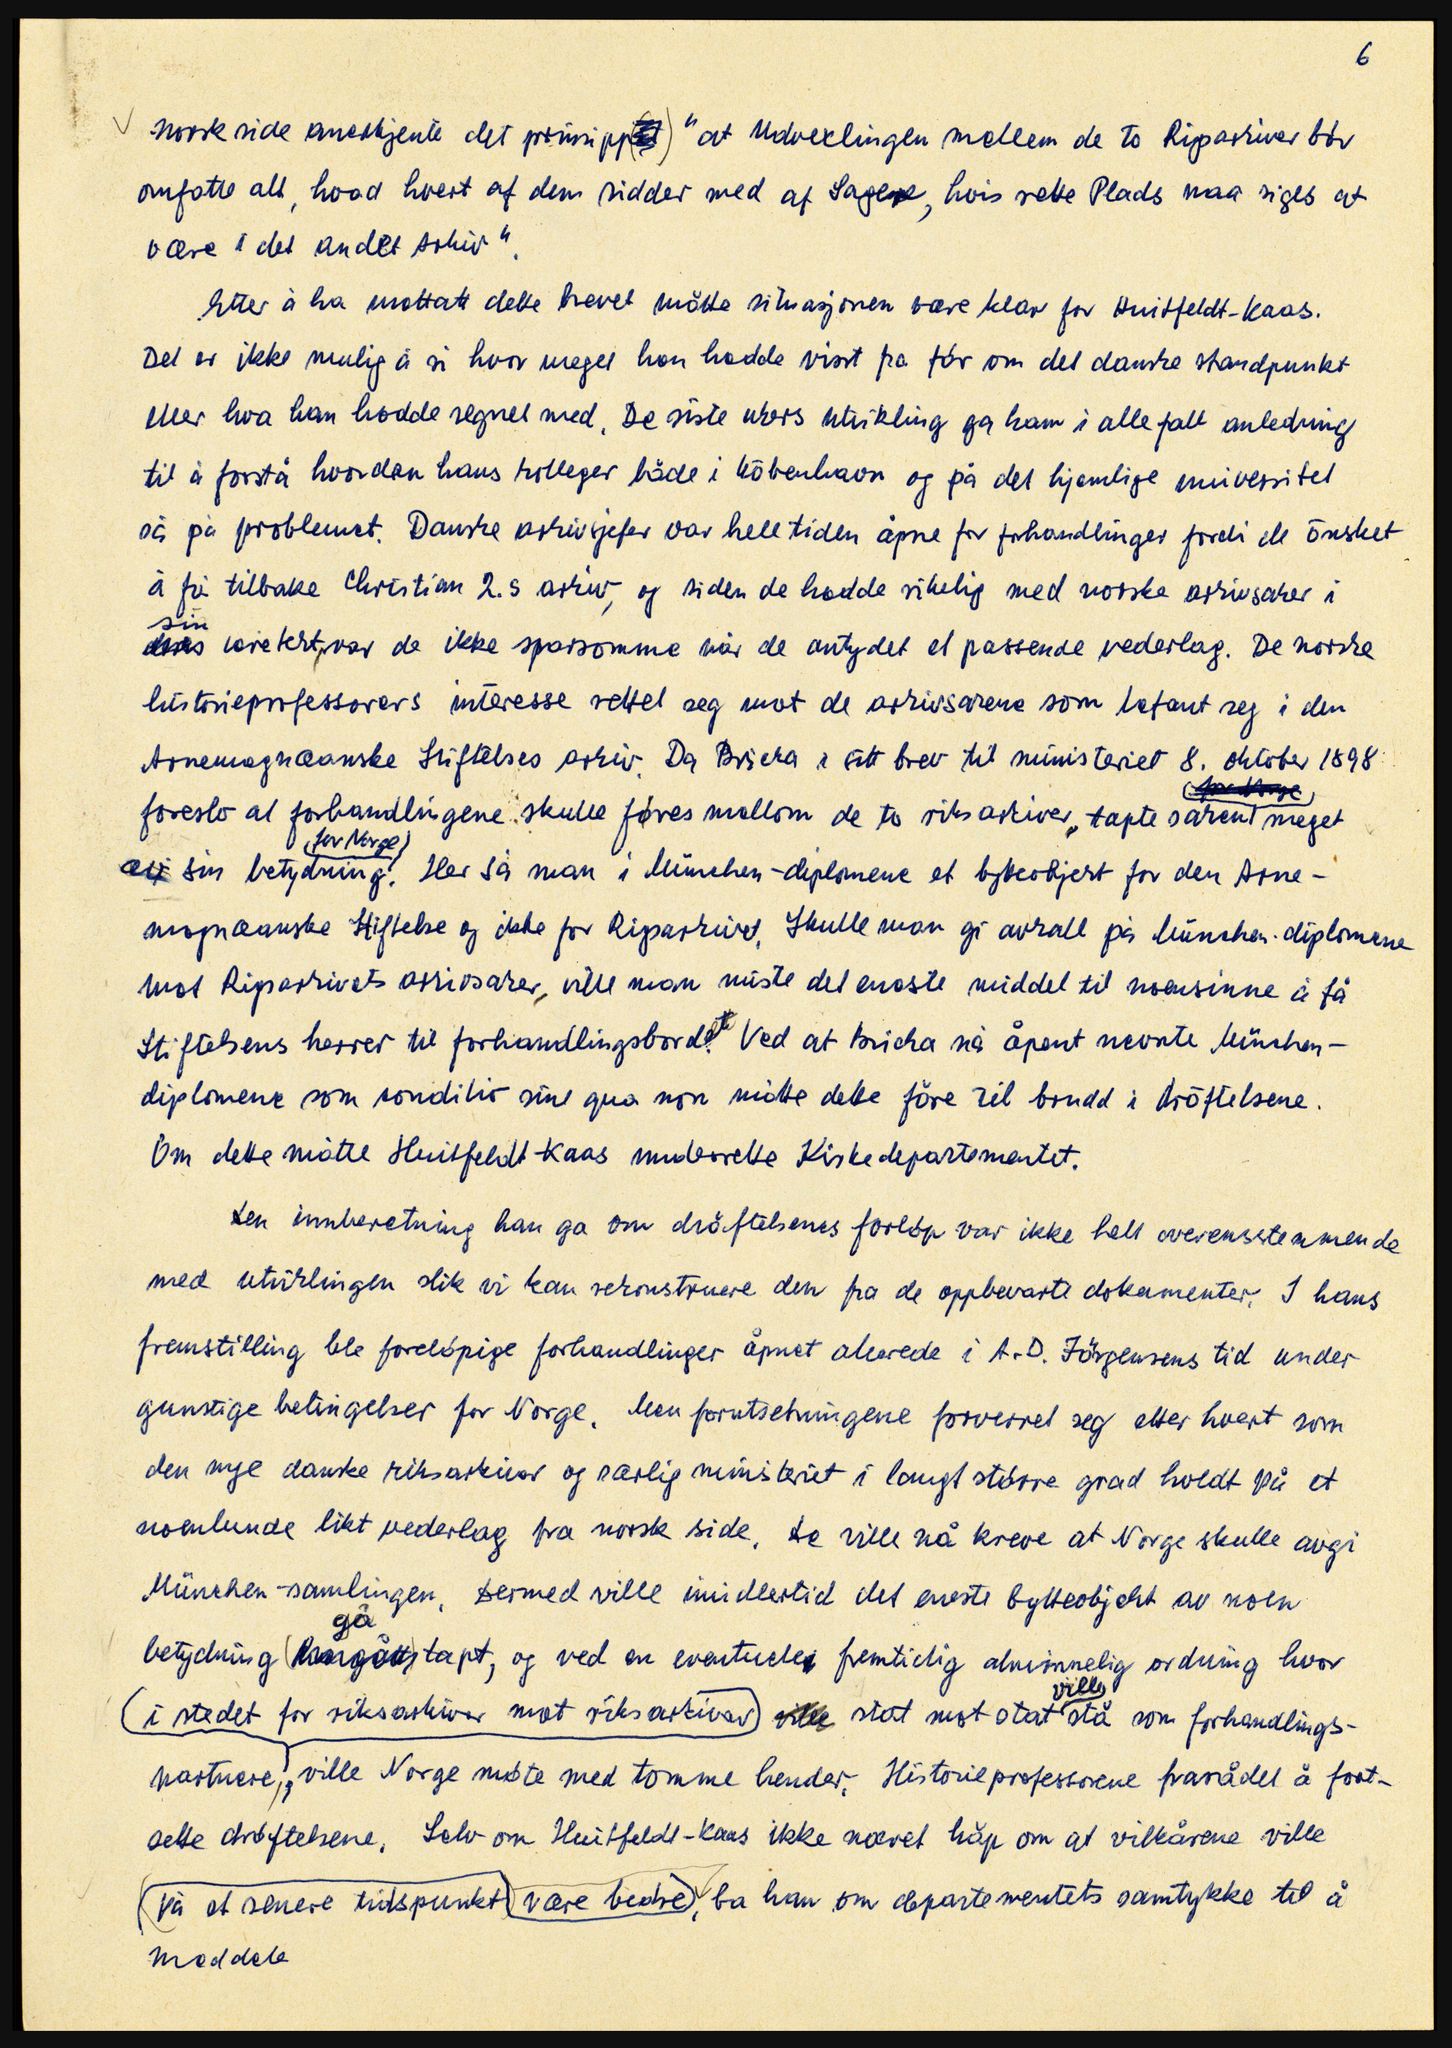 6
norsk side anerkjente det prinsipp "at Udvexlingen mellem de to Rigsarkiver bör
omfatte alt, hvad hvert af dem sidder med af Sagere, hvis rette Plads maa siges at
være i det andet Arkiv".
Etter å ha mottatt dette brevet måtte situasjonen være klar for Huitfeldt-Kaas.
Det er ikke mulig å si hvor meget han hadde visst fra för om det danske standpunkt
eller hva han hadde regnet med. De siste ukers utvikling ga ham i alle fall anledning
til å forstå hvordan hans kolleger både i Köbenhavn og på det hjemlige universitet
så på problemet. Danske arkivsjefer var hele tiden åpne for forhandlinger fordi de önsket
å få tilbake Christian 2.s arkiv, og siden de hadde rikelig med norske arkivsaker i
sin varetekt, var de ikke sparsomme når de antydet et passende vederlag. De norske
historieprofessorers interesse rettet seg mot de arkivsakene som befant seg i den
Arnemagnæanske Stiftelses arkiv. Da Bricka i sitt brev til ministeriet 8. oktober 1898
foreslo at forhandlingene skulle föres mellom de to riksarkiver, tapte saken meget
av sin betydning for Norge. Her så man i München-diplomene et bytteobjekt for den Arne-
magnæanske Stiftelse og ikke for Rigsarkivet. Skulle man gi avkall på München-diplomene
mot Rigsarkivets arkivsaker, ville man miste det eneste middel til noensinne å få
Stiftelsens herrer til forhandlingsbordet. Ved at Bricka nå åpent nevnte München-
diplomene som conditio sine qua non måtte dette före til brudd i dröftelsene.
Om dette måtte Huitfeldt-Kaas underrette Kirkedepartementet.
Den innberetning han ga om dröftelsenes forlöp var ikke helt overensstemmende
med utviklingen slik vi kan rekonstruere den fra de oppbevarte dokumenter. I hans
fremstilling ble forelöpige forhandlinger åpnet allerede i A.D. Jörgensens tid under
gunstige betingelser for Norge. Men forutsetningene forverret seg etter hvert som
den nye danske riksarkivar og særlig ministeriet i langt större grad holdt på et
noenlunde likt vederlag fra norsk side. De ville nå kreve at Norge skulle avgi
München-samlingen. Dermed ville imidlertid det eneste bytteobjekt av noen
betydning gå tapt, og ved en eventuell fremtidig alminnelig ordning hvor
i stedet for riksarkivar mot riksarkivar stat mot stat ville stå som forhandlings-
partnere, ville Norge møte med tomme hender. Historieprofessorene frarådet å fort-
sette dröftelsene. Selv om Huitfeldt-Kaas ikke næret håp om at vilkårene ville
på et senere tidspunkt være bedre, ba han om departementets samtykke til å
meddele